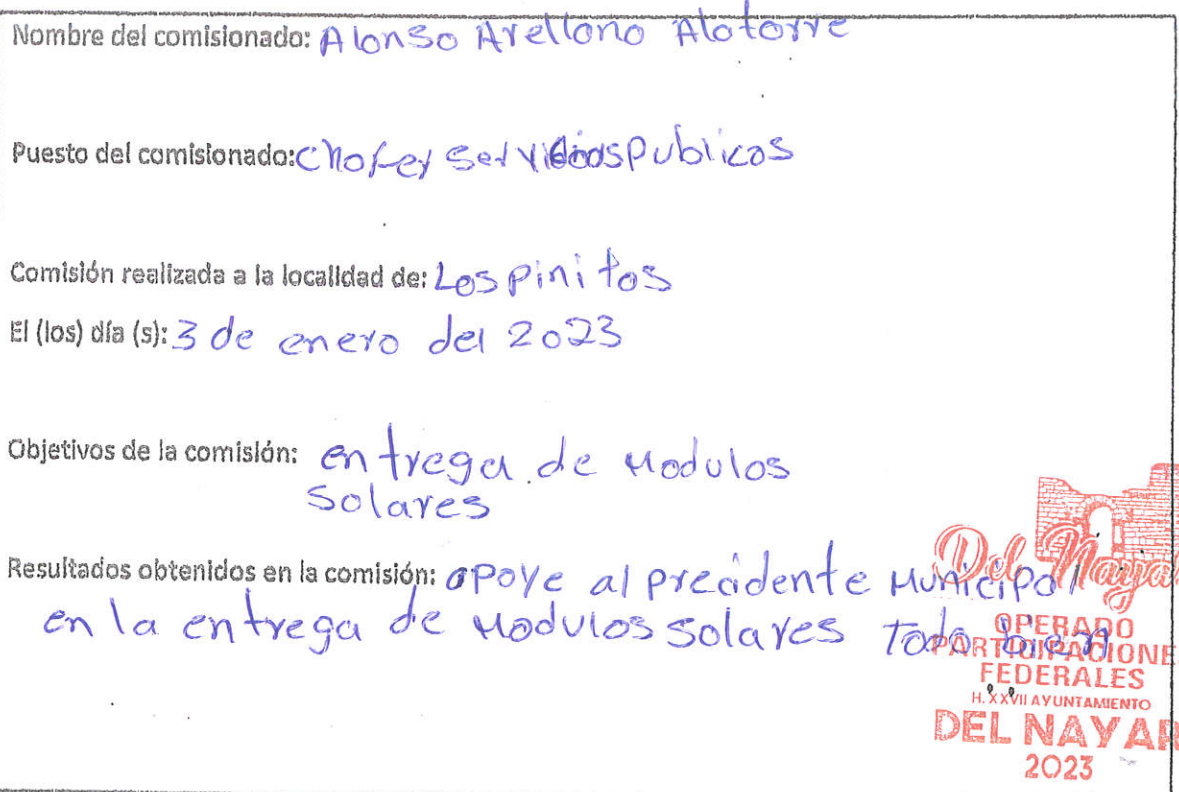 Nombre del comisionado: Alonso Arellano Alatorre
Puesto del comisionado: Chofer Servicios Publicos
Comisión realizada a la localidad de: Los pinitos
El (los) día (s): 3 de enero del 2023
Objetivos de la comisión: entrega de Modulos
Solares
Resultados obtenidos en la comisión: apoye al precidente Municipal
en la entrega de Modulos solares Todo bien
Del Nayar
OPERADO
PARTICIPACIONE
FEDERALES
H. XXVII AYUNTAMIENTO
DEL NAYAR
2023